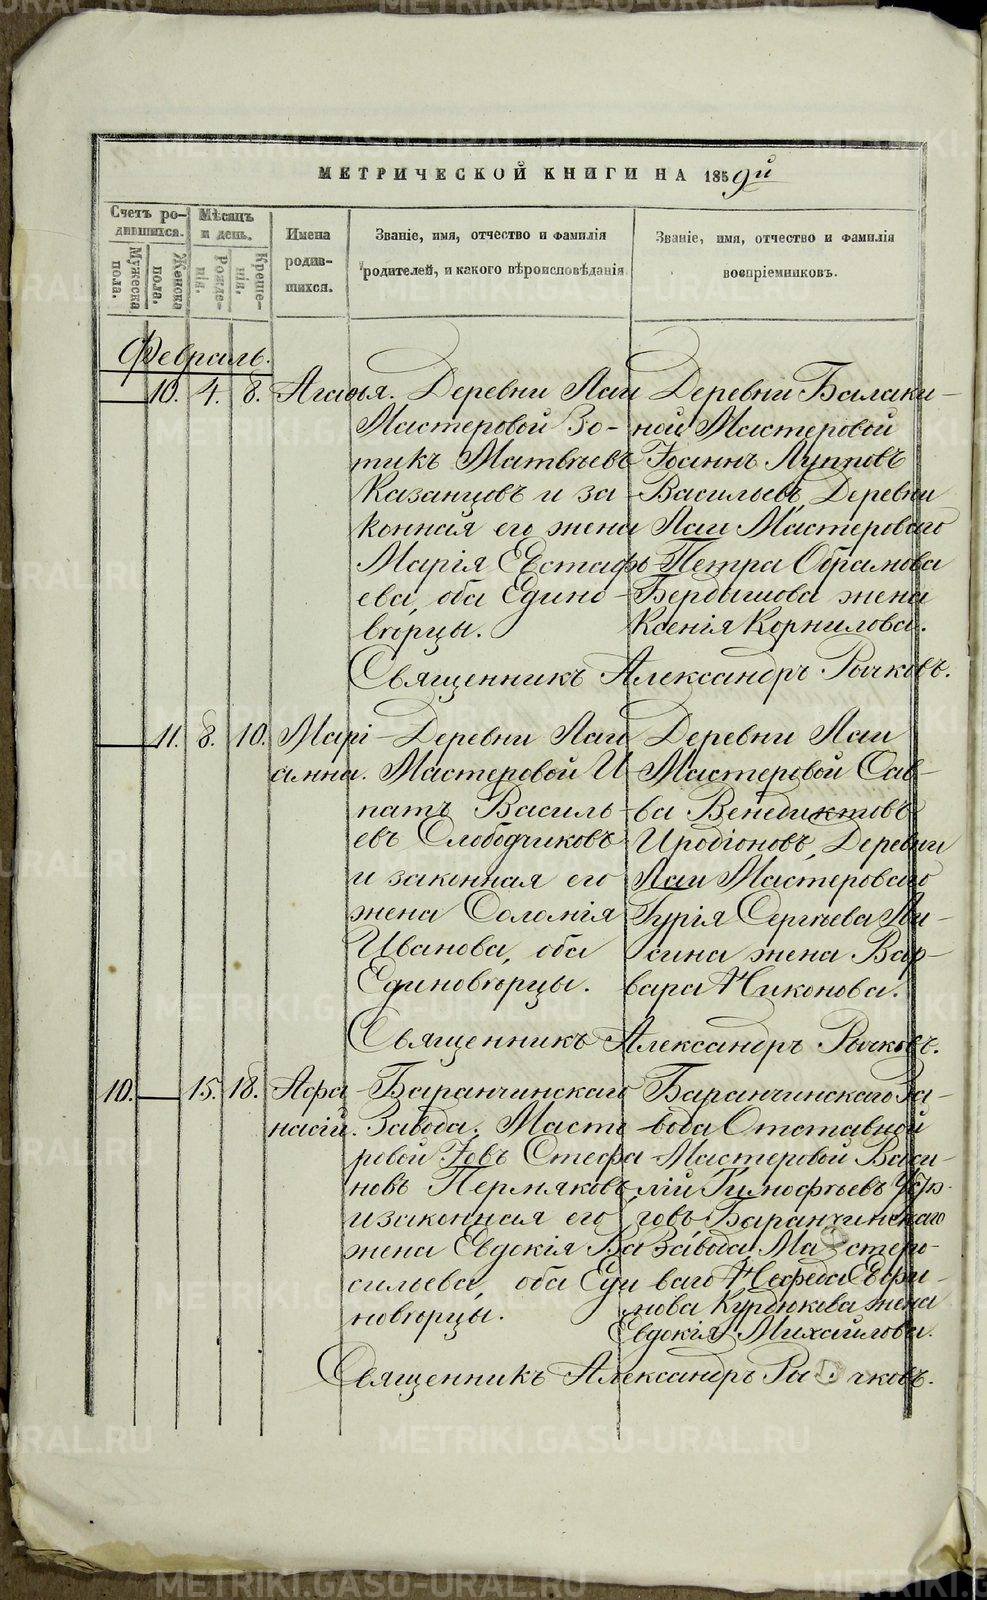 МЕТРИЧЕСКОЙ КНИГИ НА 1859й
Счетъ ро-
дившихся.
Мужеска
пола.
Женска
пола.
Мѣсяцъ
и день.
Рожде-
нія.
Креще-
нія.
Имена
родив-
шихся.
Званіе, имя, отчество и фамилія
родителей, и какого вѣроисповѣданія.
Званіе, имя, отчество и фамилія
воспріемниковъ.
Февраль.
10. 4. 8. Агафья.
Деревни Лаи
Мастеровой Зо-
тикъ Матвѣевъ
Казанцовъ и за-
конная его жена
Марія Евстафь-
ева, оба Едино-
вѣрцы.
Деревни Балаки-
ной Мастеровой
Іоаннъ Лупповъ
Васильевъ, Деревни
Лаи Мастероваго
Петра Обрамова
Бердышова жена
Ксенія Корнилова.
Священникъ Александръ Рычковъ.
11. 8. 10. Марі-
амна.
Деревни Лаи
Мастеровой И-
патъ Василь-
евъ Слободчиковъ
и законная его
жена Соломія
Иванова, оба
Единовѣрцы.
Деревни Лаи
Мастеровой Сав-
ва Венедиктовъ
Иродіоновъ, Деревни
Лаи Мастероваго
Гурія Сергѣева Ли-
сина жена Вар-
вара Никонова.
Священникъ Александръ Рычковъ.
10. 15. 18. Афа-
насій.
Баранчинскаго
Завода. Масте-
ровой Іовъ Стефа-
новъ Пермяковъ
и законная его
жена Евдокія Ва-
сильева, оба Еди-
новѣрцы.
Баранчинскаго За-
вода Отставной
Мастеровой Васи-
лій Тимофѣевъ
говъ Баранчинскаго
Завода Мастеро-
ваго Нефеда Евфи-
мова Курдюкова жена
Евдокія Михайлова.
Священникъ Александръ Рычковъ.
METRIKI.GASO-URAL.RU